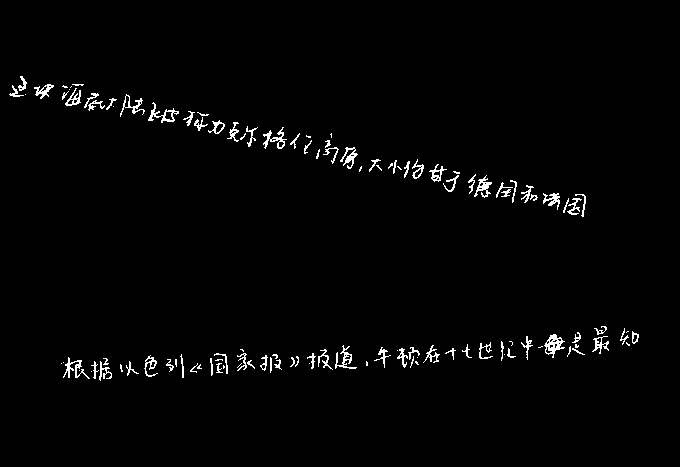 这块海底大陆被称为克尔格伦高原,大小约甘于德国和法国
根据以色列《国家报》报道,牛顿在十七世纪中是最知